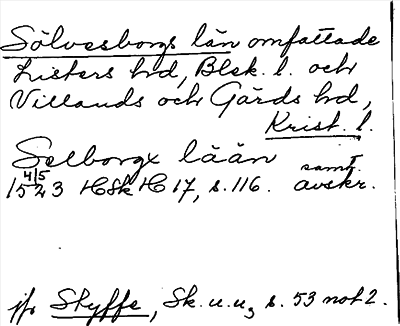 Sölvesborgs län omfattade
Listers hd, Blek. l. och
Villands och Gärds hd,
Krist. l.
Selborgx lään
1523 4/5 HSkH 17, s. 116. samt. avskr.
jfr Styffe, Sk. u. u, s. 53 not 2.